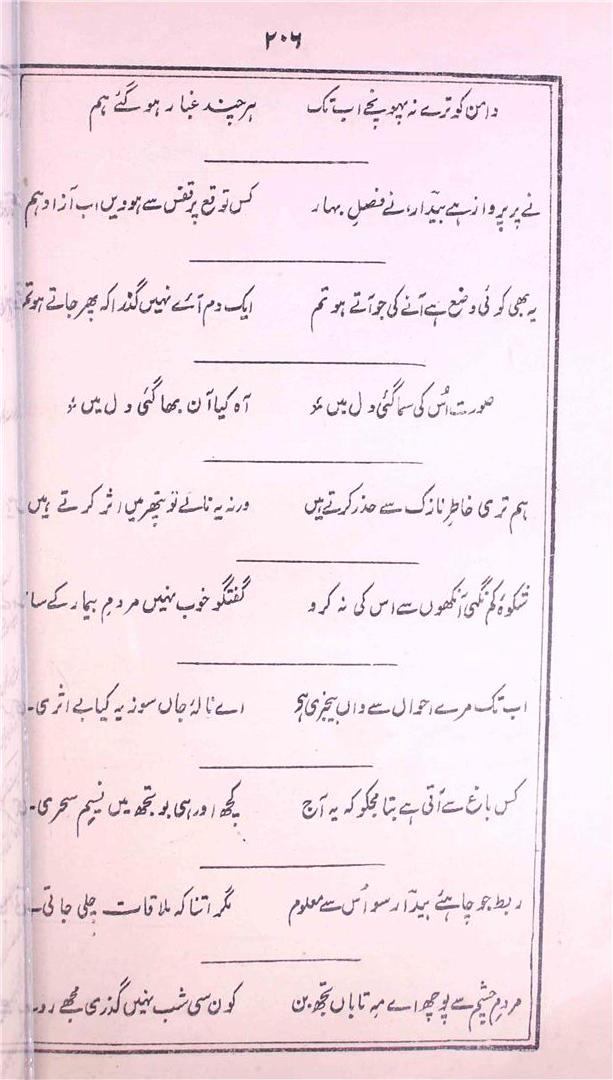 ۲۰۶
دامن کو ترے نہ پہونچے اب تک ہر چند غبار ہو گئے ہم
نے پر پرواز ہے بیدار، نے فصلِ بہار کس توقع پر قفس سے ہوویں اب آزاد ہم
یہ بھی کوئی وضع ہے آنے کی جو آتے ہو تم ایک دم آئے نہیں گذرا کہ پھر جاتے ہو تم
صورت اُس کی سما گئی دل میں آہ کیا آن بھا گئی دل میں
ہم تری خاطرِ نازک سے حذر کرتے ہیں ورنہ یہ نالے تو پتھر میں اثر کرتے ہیں
شکوۂ کم نگہی آنکھوں سے اس کی نہ کرو گفتگو خوب نہیں مردمِ بیمار کے
اب تک مرے احوال سے واں بیخبری ہے اے نالۂ جاں سوز یہ کیا بے اثری
کس باغ سے آتی ہے بتا مجکو کہ یہ آج کچھ اور ہی بو تجھ میں نسیمِ سحری
ربط جو چاہئے بیدار سو اُس سے معلوم مگر اتنا کہ ملاقات چلی جاتی
مردمِ چشم سے پوچھ اے مہِ تاباں تجھ بن کون سی شب نہیں گذری مجھے